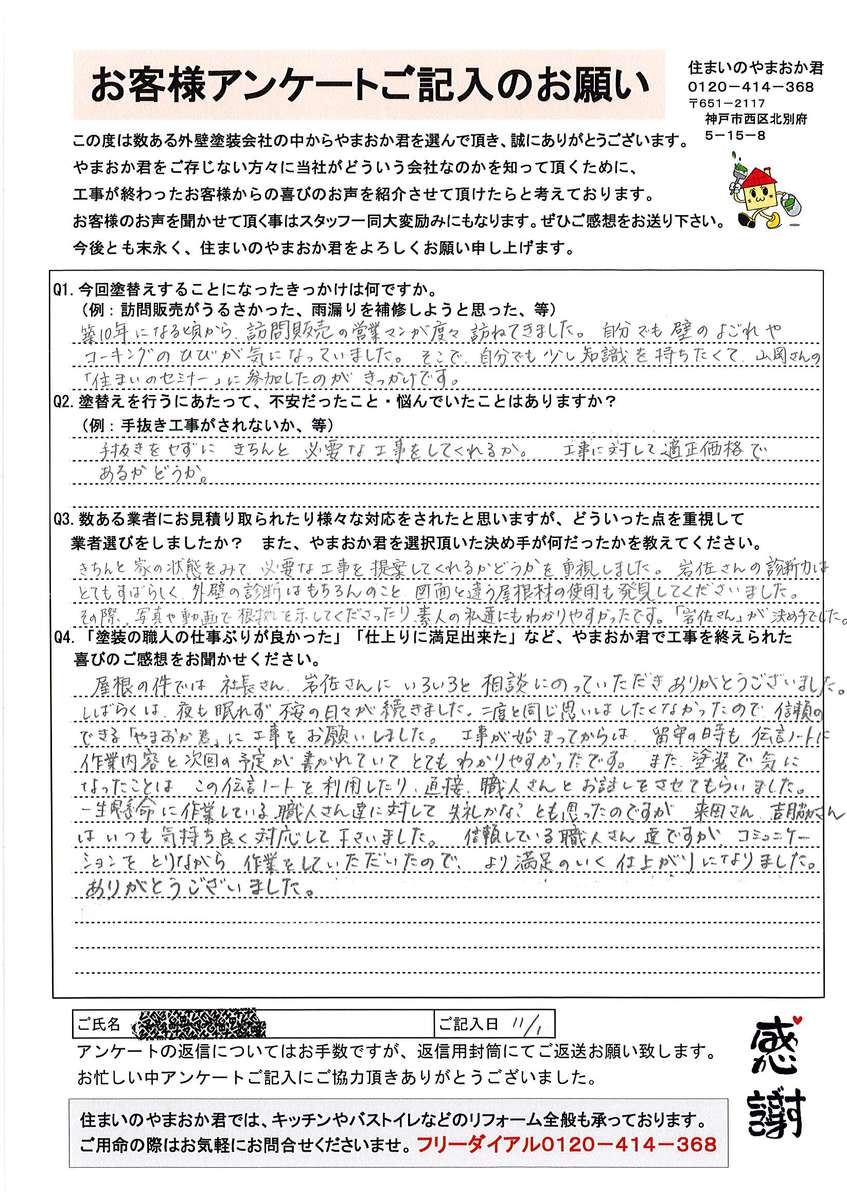 お客様アンケートご記入のお願い
住まいのやまおか君
0120-414-368
〒651-2117
神戸市西区北別府
5-15-8
この度は数ある外壁塗装会社の中からやまおか君を選んで頂き、誠にありがとうございます。
やまおか君をご存じない方々に当社がどういう会社なのかを知って頂くために、
工事が終わったお客様からの喜びのお声を紹介させて頂けたらと考えております。
お客様のお声を聞かせて頂く事はスタッフ一同大変励みにもなります。ぜひご感想をお送り下さい。
今後とも末永く、住まいのやまおか君をよろしくお願い申し上げます。
Q1. 今回塗替えすることになったきっかけは何ですか。
(例：訪問販売がうるさかった、雨漏りを補修しようと思った、等)
築10年になる頃から、訪問販売の営業マンが度々訪ねてきました。自分でも壁のよごれや
コーキングのひびが気になっていました。そこで、自分でも少し知識を持ちたくて、山岡さんの
「住まいのセミナー」に参加したのがきっかけです。
Q2. 塗替えを行うにあたって、不安だったこと・悩んでいたことはありますか？
(例：手抜き工事がされないか、等)
手抜きをせずにきちんと必要な工事をしてくれるか。 工事に対して適正価格で
あるかどうか。
Q3. 数ある業者にお見積り取られたり様々な対応をされたと思いますが、どういった点を重視して
業者選びをしましたか？ また、やまおか君を選択頂いた決め手が何だったかを教えてください。
きちんと家の状態をみて、必要な工事を提案してくれるかどうかを重視しました。岩佐さんの診断力は
とてもすばらしく、外壁の診断はもちろんのこと図面と違う屋根材の使用も発見してくださいました。
その際、写真や動画で根拠を示してくださったり素人の私達にもわかりやすかったです。「岩佐さん」が決め手でした。
Q4. 「塗装の職人の仕事ぶりが良かった」「仕上りに満足出来た」など、やまおか君で工事を終えられた
喜びのご感想をお聞かせください。
屋根の件では、社長さん、岩佐さんにいろいろと相談にのっていただきありがとうございました。
しばらくは、夜も眠れず不安の日々が続きました。二度と同じ思いはしたくなかったので信頼の
できる「やまおか君」に工事をお願いしました。工事が始まってからは、留守の時も伝言ノートに
作業内容と次回の予定が書かれていてとてもわかりやすかったです。また、塗装で気に
なったことは、この伝言ノートを利用したり、直接、職人さんとお話しをさせてもらいました。
一生懸命に作業している職人さん達に対して失礼かな？とも思ったのですが、来田さん、吉脇さん
はいつも気持ち良く対応して下さいました。信頼している職人さん達ですが、コミュニケー
ションをとりながら、作業をしていただいたので、より満足のいく仕上がりになりました。
ありがとうございました。
ご氏名
ご記入日 11/1
アンケートの返信についてはお手数ですが、返信用封筒にてご返送お願い致します。
お忙しい中アンケートご記入にご協力頂きありがとうございました。
感謝
住まいのやまおか君では、キッチンやバストイレなどのリフォーム全般も承っております。
ご用命の際はお気軽にお問合せくださいませ。フリーダイアル0120-414-368